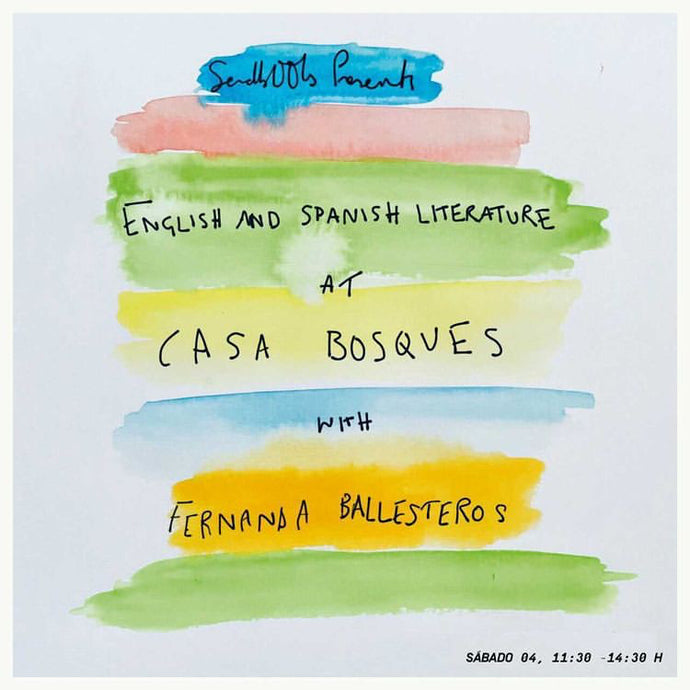 Sendb00ks Presents
ENGLISH AND SPANISH LITERATURE
AT
CASA BOSQUES
WITH
FERNANDA BALLESTEROS
SÁBADO 04, 11:30 -14:30 H